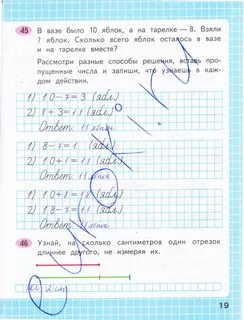 45 В вазе было 10 яблок, а на тарелке — 8. Взяли
7 яблок. Сколько всего яблок осталось в вазе
и на тарелке вместе?
Рассмотри разные способы решения, вставь про-
пущенные числа и запиши, что узнаешь в каж-
дом действии.
1) 10-7=3 (ябл.)
2) 8+3=11 (ябл.)
Ответ: 11 яблок
1) 8-7=1 (ябл.)
2) 10+1=11 (ябл.)
Ответ: 11 яблок
1) 10+8=18 (ябл.)
2) 18-7=11 (ябл.)
Ответ: 11 яблок
46 Узнай, на сколько сантиметров один отрезок
длиннее другого, не измеряя их.
19